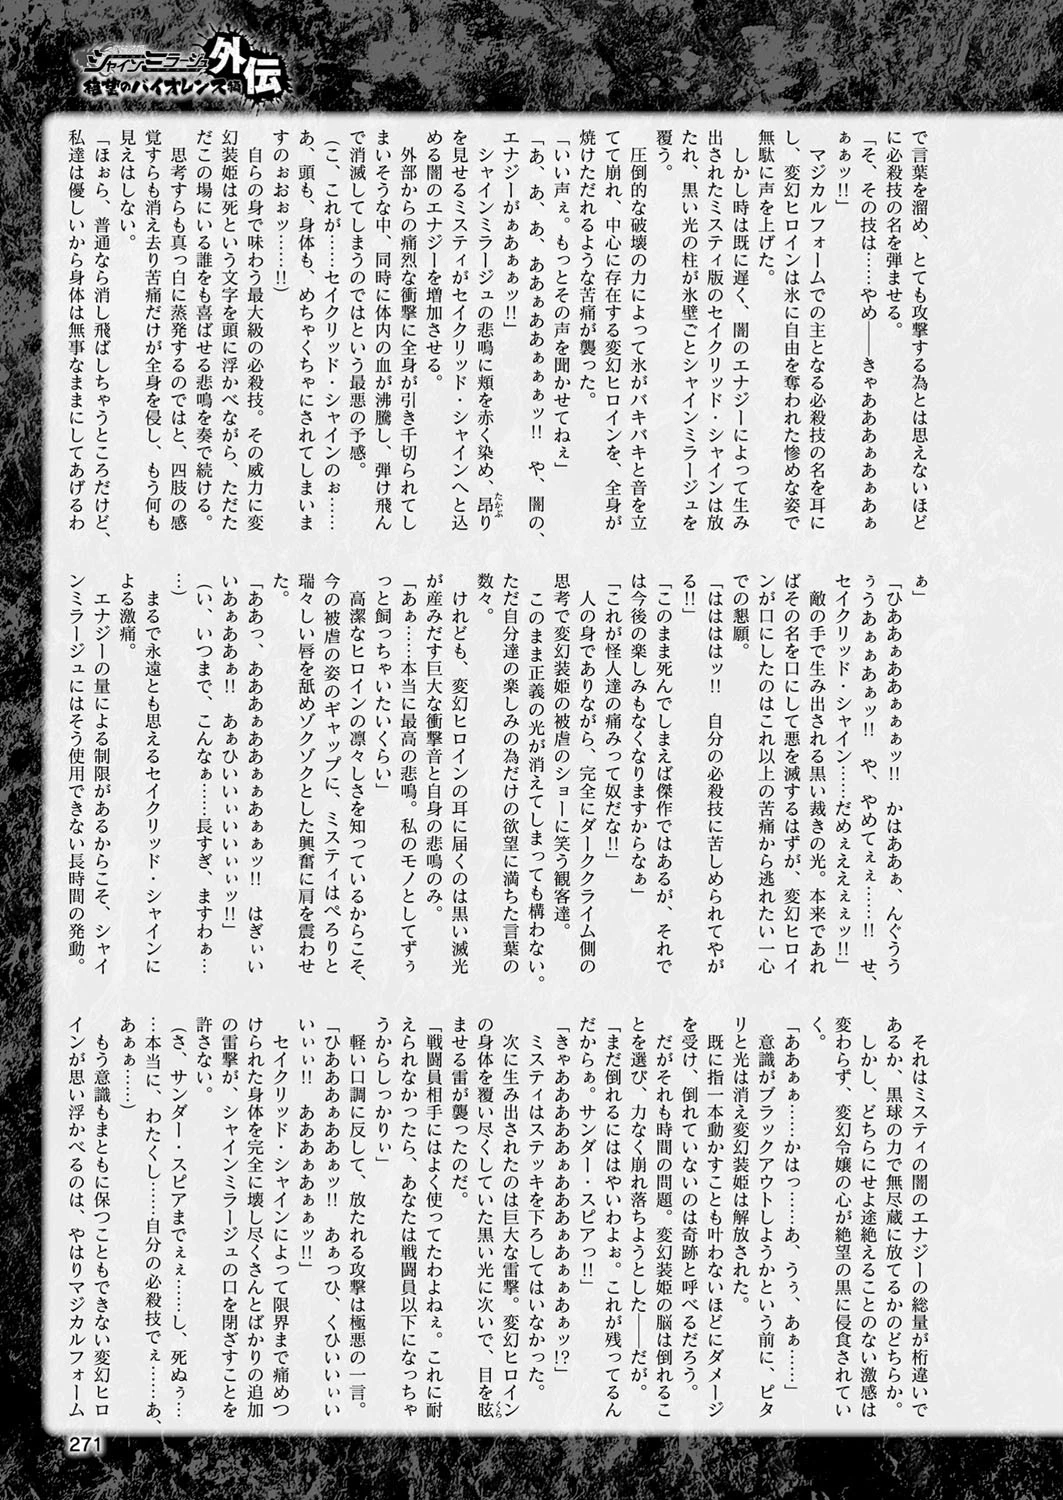 シャインミラージュ外伝
絶望のバイオレンス編
で言葉を溜め、とても攻撃する為とは思えないほど
に必殺技の名を弾ませる。
「そ、その技は……やめ――きゃあああぁあぁあぁ
ぁぁッ!!」
マジカルフォームでの主となる必殺技の名を耳に
し、変幻ヒロインは氷に自由を奪われた惨めな姿で
無駄に声を上げた。
しかし時は既に遅く、闇のエナジーによって生み
出されたミスティ版のセイクリッド・シャインは放
たれ、黒い光の柱が氷壁ごとシャインミラージュを
覆う。
圧倒的な破壊の力によって氷がバキバキと音を立
てて崩れ、中心に存在する変幻ヒロインを、全身が
焼けただれるような苦痛が襲った。
「いい声ぇ。もっとその声を聞かせてねぇ」
「あ、あ、あ、ああぁああぁぁぁッ!! や、闇の、
エナジーがぁあぁぁッ!!」
シャインミラージュの悲鳴に頬を赤く染め、昂り
たかぶ
を見せるミスティがセイクリッド・シャインへと込
める闇のエナジーを増加させる。
外部からの痛烈な衝撃に全身が引き千切られてし
まいそうな中、同時に体内の血が沸騰し、弾け飛ん
で消滅してしまうのではという最悪の予感。
(こ、これが……セイクリッド・シャインのぉ……
あ、頭も、身体も、めちゃくちゃにされてしまいま
すのぉおぉッ……!!)
自らの身で味わう最大級の必殺技。その威力に変
幻装姫は死という文字を頭に浮かべながら、ただた
だこの場にいる誰をも喜ばせる悲鳴を奏で続ける。
思考すらも真っ白に蒸発するのではと、四肢の感
覚すらも消え去り苦痛だけが全身を侵し、もう何も
見えはしない。
「ほぉら、普通なら消し飛ばしちゃうところだけど、
私達は優しいから身体は無事なままにしてあげるわ
ぁ」
「ひあああぁあああぁぁぁッ!! かはあぁぁ、んぐうう
ぅうあぁぁあぁッ!! や、やめてぇぇ……!! せ、
セイクリッド・シャイン……だめぇええぇぇッ!!」
敵の手で生み出される黒い裁きの光。本来であれ
ばその名を口にして悪を滅するはずが、変幻ヒロイ
ンが口にしたのはこれ以上の苦痛から逃れたい一心
での懇願。
「はははははッ!! 自分の必殺技に苦しめられてやが
る!!」
「このまま死んでしまえば傑作ではあるが、それで
は今後の楽しみもなくなりますからなぁ」
「これが怪人達の痛みって奴だな!!」
人の身でありながら、完全にダーククライム側の
思考で変幻装姫の被虐のショーに笑う観客達。
このまま正義の光が消えてしまっても構わない。
ただ自分達の楽しみの為だけの欲望に満ちた言葉の
数々。
けれども、変幻ヒロインの耳に届くのは黒い滅光
が産みだす巨大な衝撃音と自身の悲鳴のみ。
「あぁ……本当に最高の悲鳴。私のモノとしてずぅ
っと飼っちゃいたいくらい」
高潔なヒロインの凛々しさを知っているからこそ、
今の被虐の姿のギャップに、ミスティはぺろりと
瑞々しい唇を舐めゾクゾクとした興奮に肩を震わせ
た。
「ああっ、あああぁああぁぁあぁぁッ!! はぎぃい
いあぁああぁ!! あぁひいいぃいいぃぃッ!!」
(い、いつまで、こんなぁ……長すぎ、ますわぁ…
…)
まるで永遠とも思えるセイクリッド・シャインに
よる激痛。
エナジーの量による制限があるからこそ、シャイ
ンミラージュにはそう使用できない長時間の発動。
それはミスティの闇のエナジーの総量が桁違いで
あるか、黒球の力で無尽蔵に放てるかのどちらか。
しかし、どちらにせよ途絶えることのない激感は
変わらず、変幻令嬢の心が絶望の黒に侵食されてい
く。
「ああぁぁ……かはっ……あ、うぅ、あぁ……」
意識がブラックアウトしようかという前に、ピタ
リと光は消え変幻装姫は解放された。
既に指一本動かすことも叶わないほどにダメージ
を受け、倒れていないのは奇跡と呼べるだろう。
だがそれも時間の問題。変幻装姫の脳は倒れるこ
とを選び、力なく崩れ落ちようとした――だが。
「まだ倒れるにははやいわよぉ。これが残ってるん
だからぁ。サンダー・スピアっ!!」
「きゃあああああぁあああぁあぁぁあぁッ!?
ミスティはステッキを下ろしてはいなかった。
次に生み出されたのは巨大な雷撃。変幻ヒロイン
の身体を覆い尽くしていた黒い光に次いで、目を眩
くら
ませる雷が襲ったのだ。
「戦闘員相手にはよく使ってたわよねぇ。これに耐
えられなかったら、あなたは戦闘員以下になっちゃ
うからしっかりぃ」
軽い口調に反して、放たれる攻撃は極悪の一言。
「ひあああぁああぁッ!! あぁっひ、くひいいぃい
いぃぃ!! あああぁあぁぁッ!!」
セイクリッド・シャインによって限界まで痛めつ
けられた身体を完全に壊し尽くさんとばかりの追加
の雷撃が、シャインミラージュの口を閉ざすことを
許さない。
(さ、サンダー・スピアまでぇぇ……し、死ぬぅ…
…本当に、わたくし……自分の必殺技でぇ……あ、
あぁぁ……)
もう意識もまともに保つこともできない変幻ヒロ
インが思い浮かべるのは、やはりマジカルフォーム
271